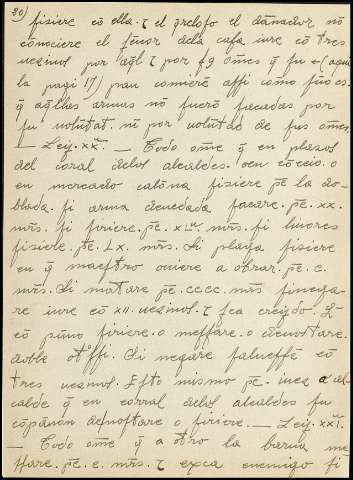 20) fisiere cõ ella. τ el q̃reloso el dãnador nõ
cõnosciere el sẽnor dela casa iure cõ tres
uezinos por aq̃l τ por sꝯ omes q̃ fu
la pagi 17) pan comierẽ assi como suso es.
q̃ aq̃llas armas nõ fuerõ sacadas por
su uolũtat. ni por uolũtad de sus omẽs.
— Ley. xx. — Todo omẽ q̃ en plazos
del coral delos alcaldes. o en cõceio. o
en mercado calõna fisiere pẽ la do-
blada. si arma deuedada sacare. pẽ. xx.
mrs. si firiere. pẽ. xl. mrs. si liuores
fisiere. pẽ. Lx. mrs. Si plaga fisiere
en q̃ maestro ouiere a obrar. pẽ. c.
mrs. Si matare pẽ. cccc. mrs si nega-
re iure cõ xii. uezinos. τ sea creydo.
cõ pũno firiere. o messare. o denostare.
doble otossi. Si negare saluesse cõ
tres uezinos. Esto mismo pẽ. al al-
calde q̃ en corral delos alcaldes su
cõpãnon denostare o firiere. — Ley. xxi.
— Todo omẽ q̃ a otro la barua me-
ssare. pẽ. c. mrs. τ exca enemigo si